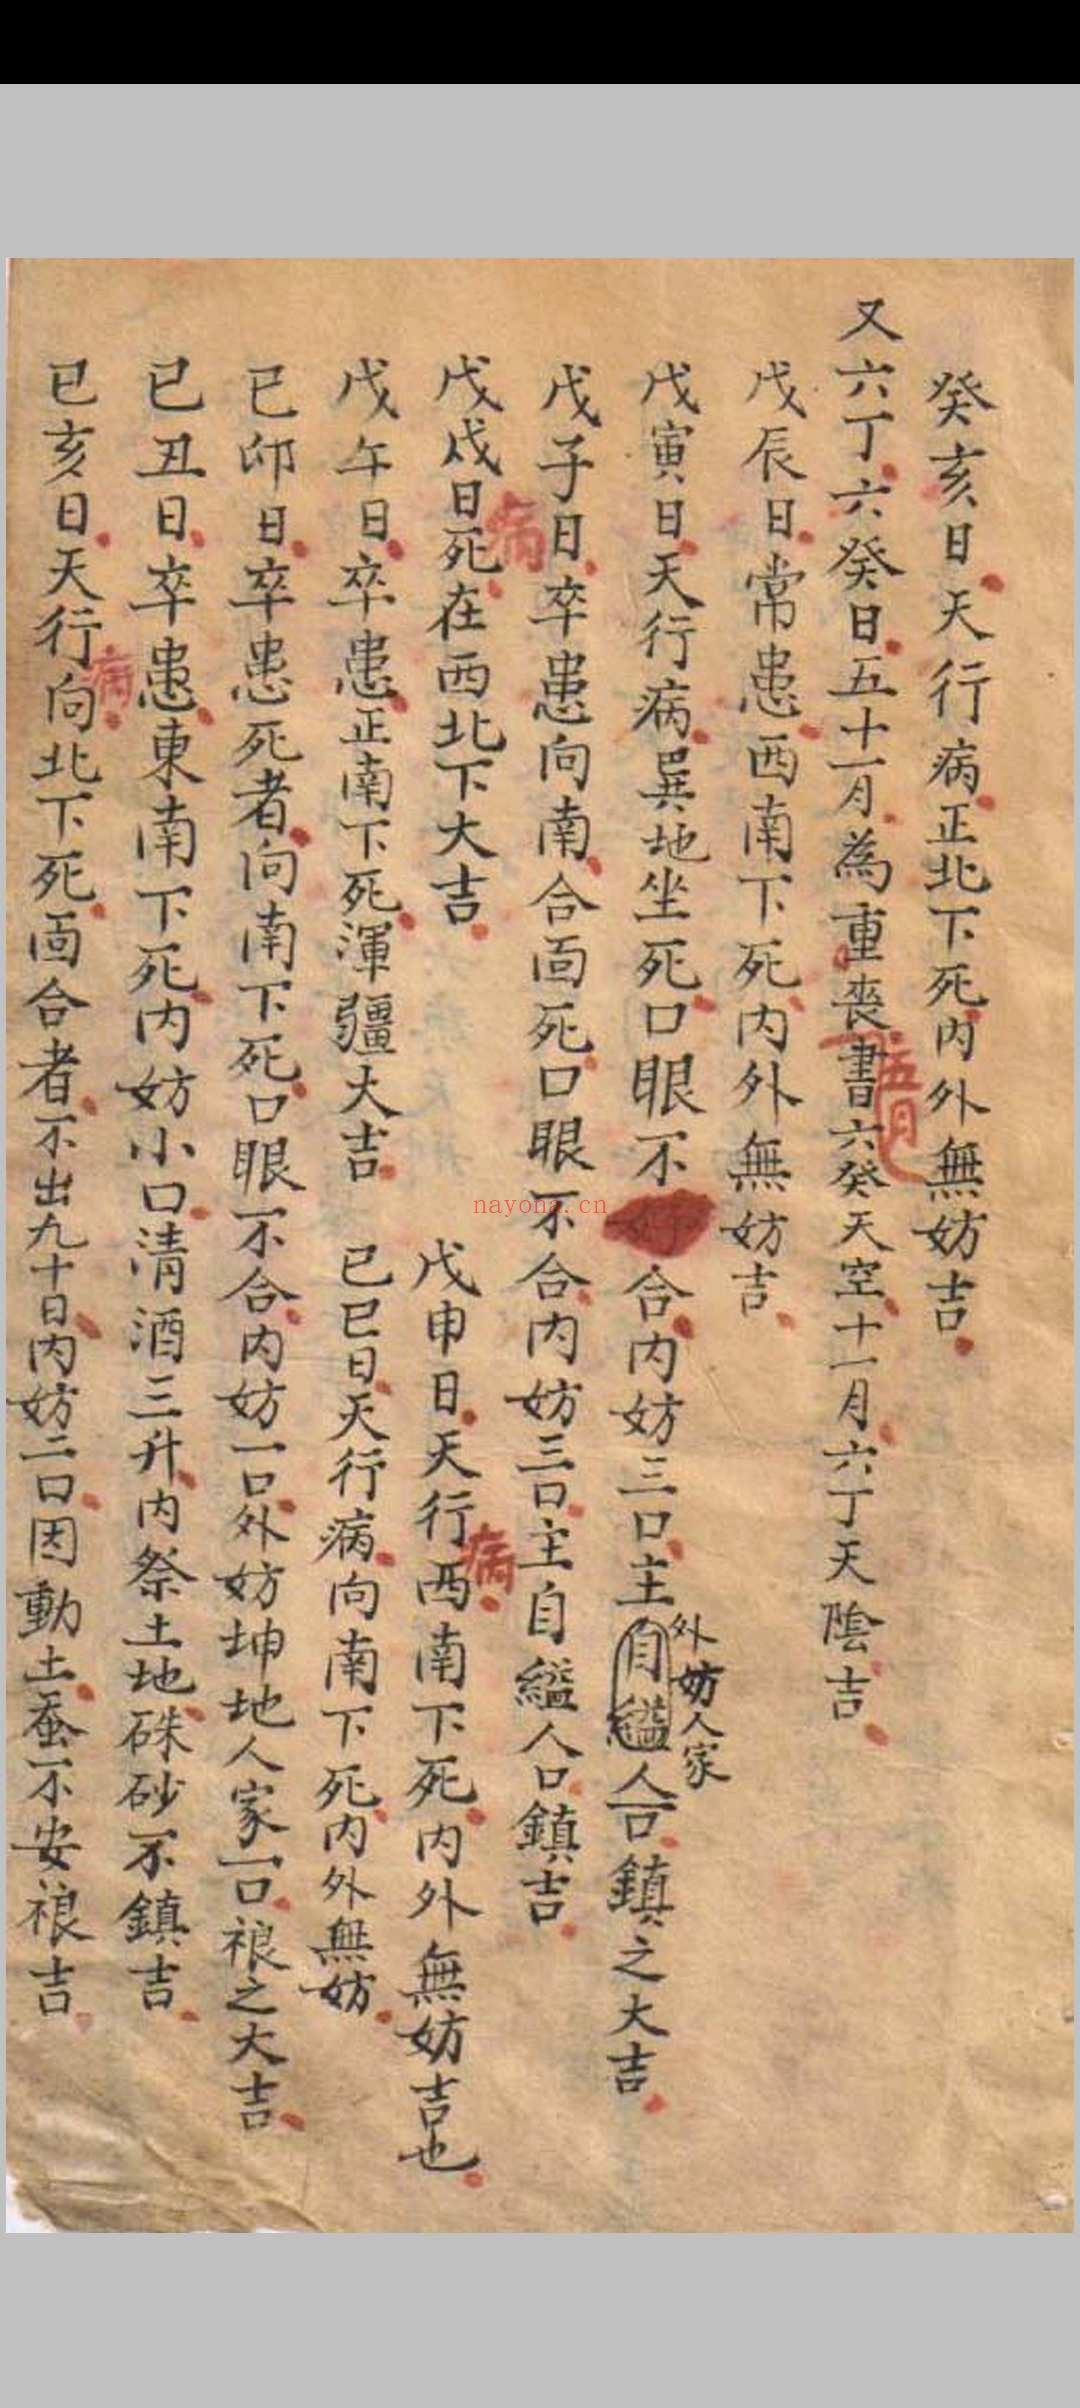 癸亥日天行病正北下死内外無妨吉
又六丁六癸日五十一月為重喪書六癸天空十一月六丁天陰吉
五月
戊辰日常患西南下死内外無妨吉
戊寅日天行病巽地坐死口眼不合内妨三口主自縊人口鎮之大吉
外妨人家
戊子日卒患向南合面死口眼不合内妨三口主自縊人口鎮吉
戊戌日死在西北下大吉
病
戊申日天行西南下死内外無妨吉也
病
戊午日卒患正南下死渾疆大吉
己巳日天行病向南下死内外無妨
己卯日卒患死者向南下死口眼不合内妨一口外妨坤地人家一口禳之大吉
己丑日卒患東南下死内妨小口清酒三升内祭土地硃砂不鎮吉
己亥日天行向北下死面合者不出九十日内妨二口因動土蚕不安禳吉
病
nayona.cn